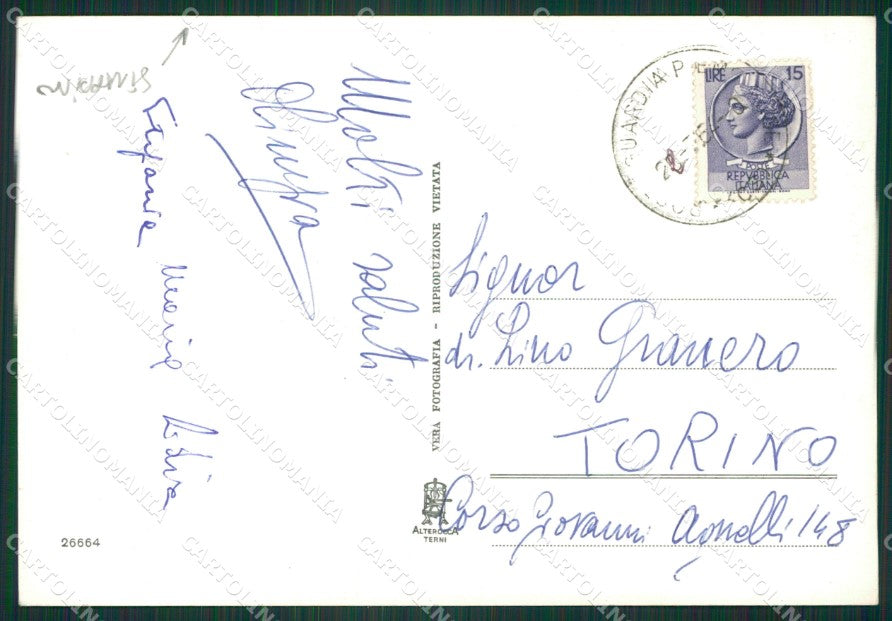 Molti saluti
Olimpia
Stefania Maria Lidia
Signor
dr. Lino Granero
TORINO
Corso Giovanni Agnelli 148
VERA FOTOGRAFIA - RIPRODUZIONE VIETATA
ALTEROCCA
TERNI
26664
LIRE 15
POSTE
REPVBBLICA
ITALIANA
CARTOLINOMANIA